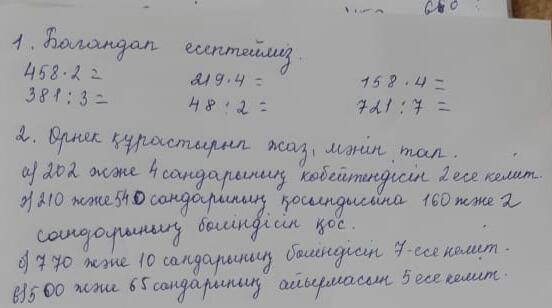 1. Бағандап есептейміз.
458·2= 219·4= 158·4=
381:3= 48:2= 721:7=
2. Өрнек құрастырып жаз, мәнін тап.
а) 202 және 4 сандарының көбейтіндісін 2 есе кеміт.
ә) 210 және 540 сандарының қосындысына 160 және 2
сандарының бөліндісін қос.
б) 770 және 10 сандарының бөліндісін 7-есе кеміт.
в) 500 және 65 сандарының айырмасын 5 есе кеміт.